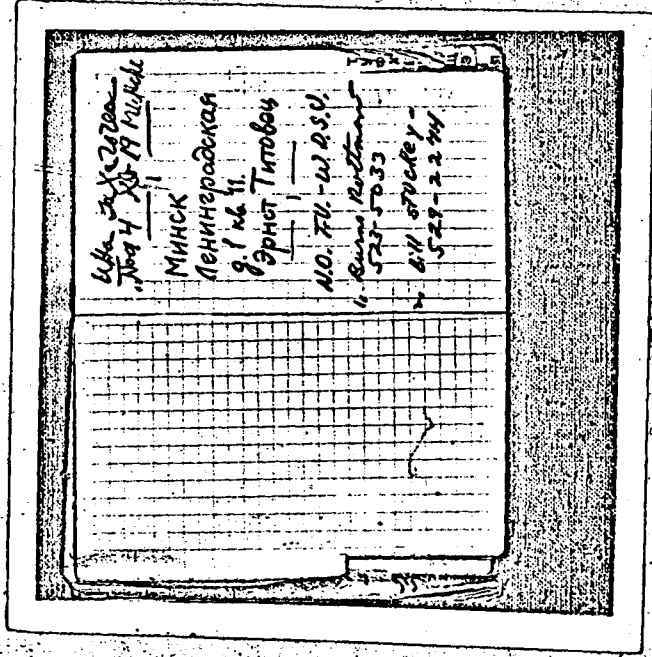 Дом 4 кв 19 Минск
Минск
Ленинградская
д. 1 кв 11.
Эрнст Титовец
N.O. T.V. - W.D.S.U.
1, Burns Rottman
523-5033
2, Bill STUCKEY -
529-2244